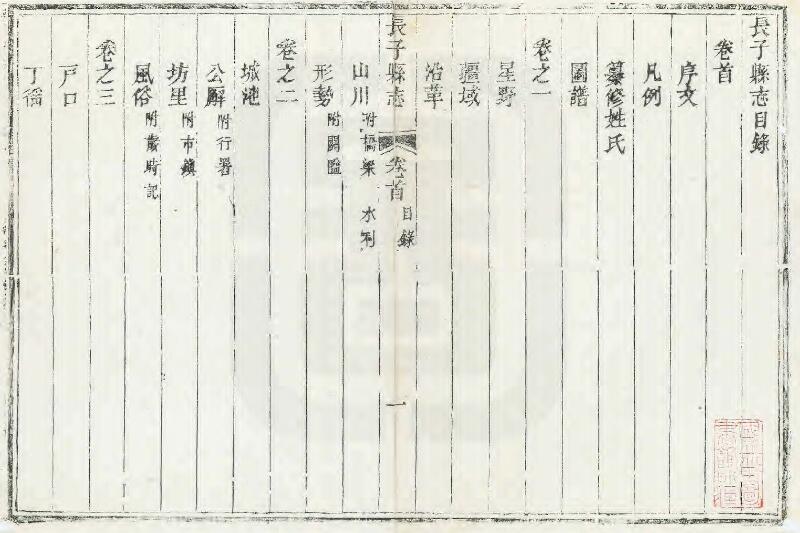 長子縣志目錄
卷首
序文
凡例
纂修姓氏
圖譜
卷之一
星野
疆域
沿革
長子縣志 卷首 目錄 一
山川 附橋梁 水利
形勢 附關隘
卷之二
城池
公廨 附行署
坊里 附市鎮
風俗 附歲時記
卷之三
戸口
丁徭